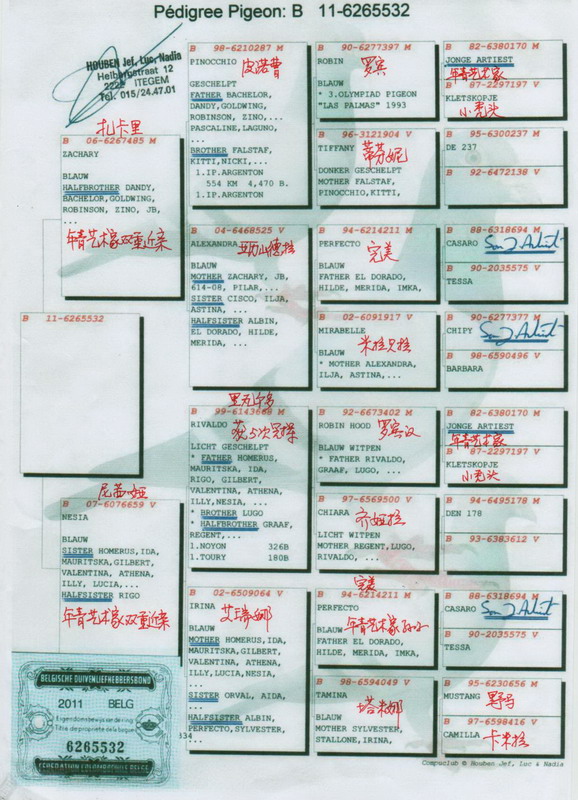 Pédigree Pigeon: B 11-6265532
HOUBEN Jef, Luc, Nadia
Helbergstraat 12
2222 ITEGEM
Tel. 015/24.47.01
扎卡里
B 06-6267485 M
ZACHARY
BLAUW
HALFBROTHER DANDY,
BACHELOR,GOLDWING,
ROBINSON, ZINO, JB,
...
年青艺术家双重近亲
B 11-6265532
尼茜娅
B 07-6076659 V
NESIA
BLAUW
SISTER HOMERUS,IDA,
MAURITSKA,GILBERT,
VALENTINA, ATHENA,
ILLY, LUCIA,...
HALFSISTER RIGO
年青艺术家双重近亲
BELGISCHE DUIVENLIEFHEBBERSBOND
2011 BELG
Eigendomsbewijs van de ring
Titre de propriété de la bague
6265532
FEDERATION COLOMBOPHILE BELGE
334
B 98-6210287 M
PINOCCHIO 皮诺曹
GESCHELPT
FATHER BACHELOR,
DANDY,GOLDWING,
ROBINSON, ZINO,...
PASCALINE,LAGUNO,
...
BROTHER FALSTAF,
KITTI,NICKI,...
1.IP.ARGENTON
554 KM 4,470 B.
1.IP.ARGENTON
B 04-6468525 V
ALEXANDRA 亚历山德拉
BLAUW
MOTHER ZACHARY, JB,
614-08, PILAR,...
SISTER CISCO, ILJA,
ASTINA, ...
HALFSISTER ALBIN,
EL DORADO, HILDE,
MERIDA, ...
里瓦尔多
B 99-6143668 M
RIVALDO 获5次冠军
LICHT GESCHELPT
* FATHER HOMERUS,
MAURITSKA, IDA,
RIGO, GILBERT,
VALENTINA, ATHENA,
ILLY,NESIA,...
* BROTHER LUGO
* HALFBROTHER GRAAF,
REGENT,...
1.NOYON 326B
1.TOURY 180B
B 02-6509064 V
IRINA 艾瑞娜
BLAUW
MOTHER HOMERUS,IDA,
MAURITSKA,GILBERT,
VALENTINA, ATHENA,
ILLY,LUCIA,NESIA,
...
SISTER ORVAL, AIDA,
...
HALFSISTER ALBIN,
PERFECTO,SYLVESTER,
B 90-6277397 M
ROBIN 罗宾
BLAUW
* 3.OLYMPIAD PIGEON
"LAS PALMAS" 1993
B 96-3121904 V
TIFFANY 蒂芬妮
DONKER GESCHELPT
MOTHER FALSTAF,
PINOCCHIO,KITTI,
B 94-6214211 M
PERFECTO 完美
BLAUW
FATHER EL DORADO,
HILDE, MERIDA, IMKA,
B 02-6091917 V
MIRABELLE 米拉贝拉
BLAUW
* MOTHER ALEXANDRA,
ILJA, ASTINA,...
B 92-6673402 M
ROBIN HOOD 罗宾汉
BLAUW WITPEN
* FATHER RIVALDO,
GRAAF, LUGO, ...
B 97-6569500 V
CHIARA 齐娅拉
LICHT WITPEN
MOTHER REGENT,LUGO,
RIVALDO, ...
完美
B 94-6214211 M
PERFECTO
BLAUW 年青艺术家孙子
FATHER EL DORADO,
HILDE, MERIDA, IMKA,
B 98-6594049 V
TAMINA 塔米娜
BLAUW
MOTHER SYLVESTER,
STALLONE,IRINA,
B 82-6380170 M
JONGE ARTIEST
年青艺术家
B 87-2297197 V
KLETSKOPJE
小秃头
B 95-6300237 M
DE 237
B 92-6472138 V
B 88-6318694 M
CASARO
B 90-2035575 V
TESSA
B 90-6277377 M
CHIPY
B 98-6590496 V
BARBARA
B 82-6380170 M
JONGE ARTIEST
年青艺术家
B 87-2297197 V
KLETSKOPJE
小秃头
B 94-6495178 M
DEN 178
B 93-6383612 V
B 88-6318694 M
CASARO
B 90-2035575 V
TESSA
B 95-6230656 M
MUSTANG 野马
B 97-6598416 V
CAMILLA 卡米拉
Compuclub © Houben Jef, Luc & Nadia